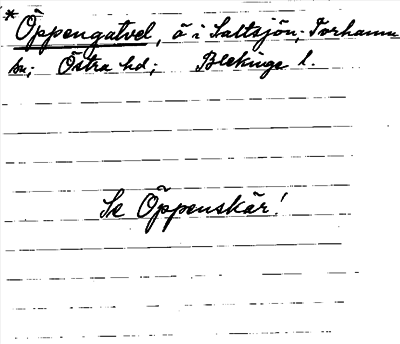 * Öppengatvel, ö i Saltsjön; Torhamn
sn; Östra hd; Blekinge l.
Se Öppenskär!